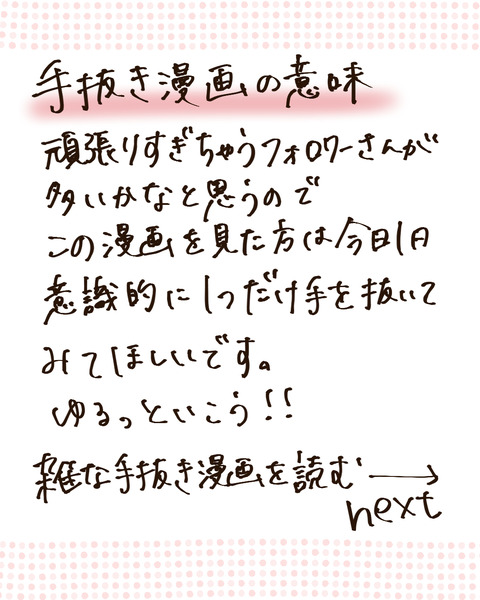 手抜き漫画の意味
頑張りすぎちゃうフォロワーさんが
多いかなと思うので
この漫画を見た方は今日1日
意識的に1つだけ手を抜いて
みてほしいです。
ゆるっといこう!!
雑な手抜き漫画を読む→
next